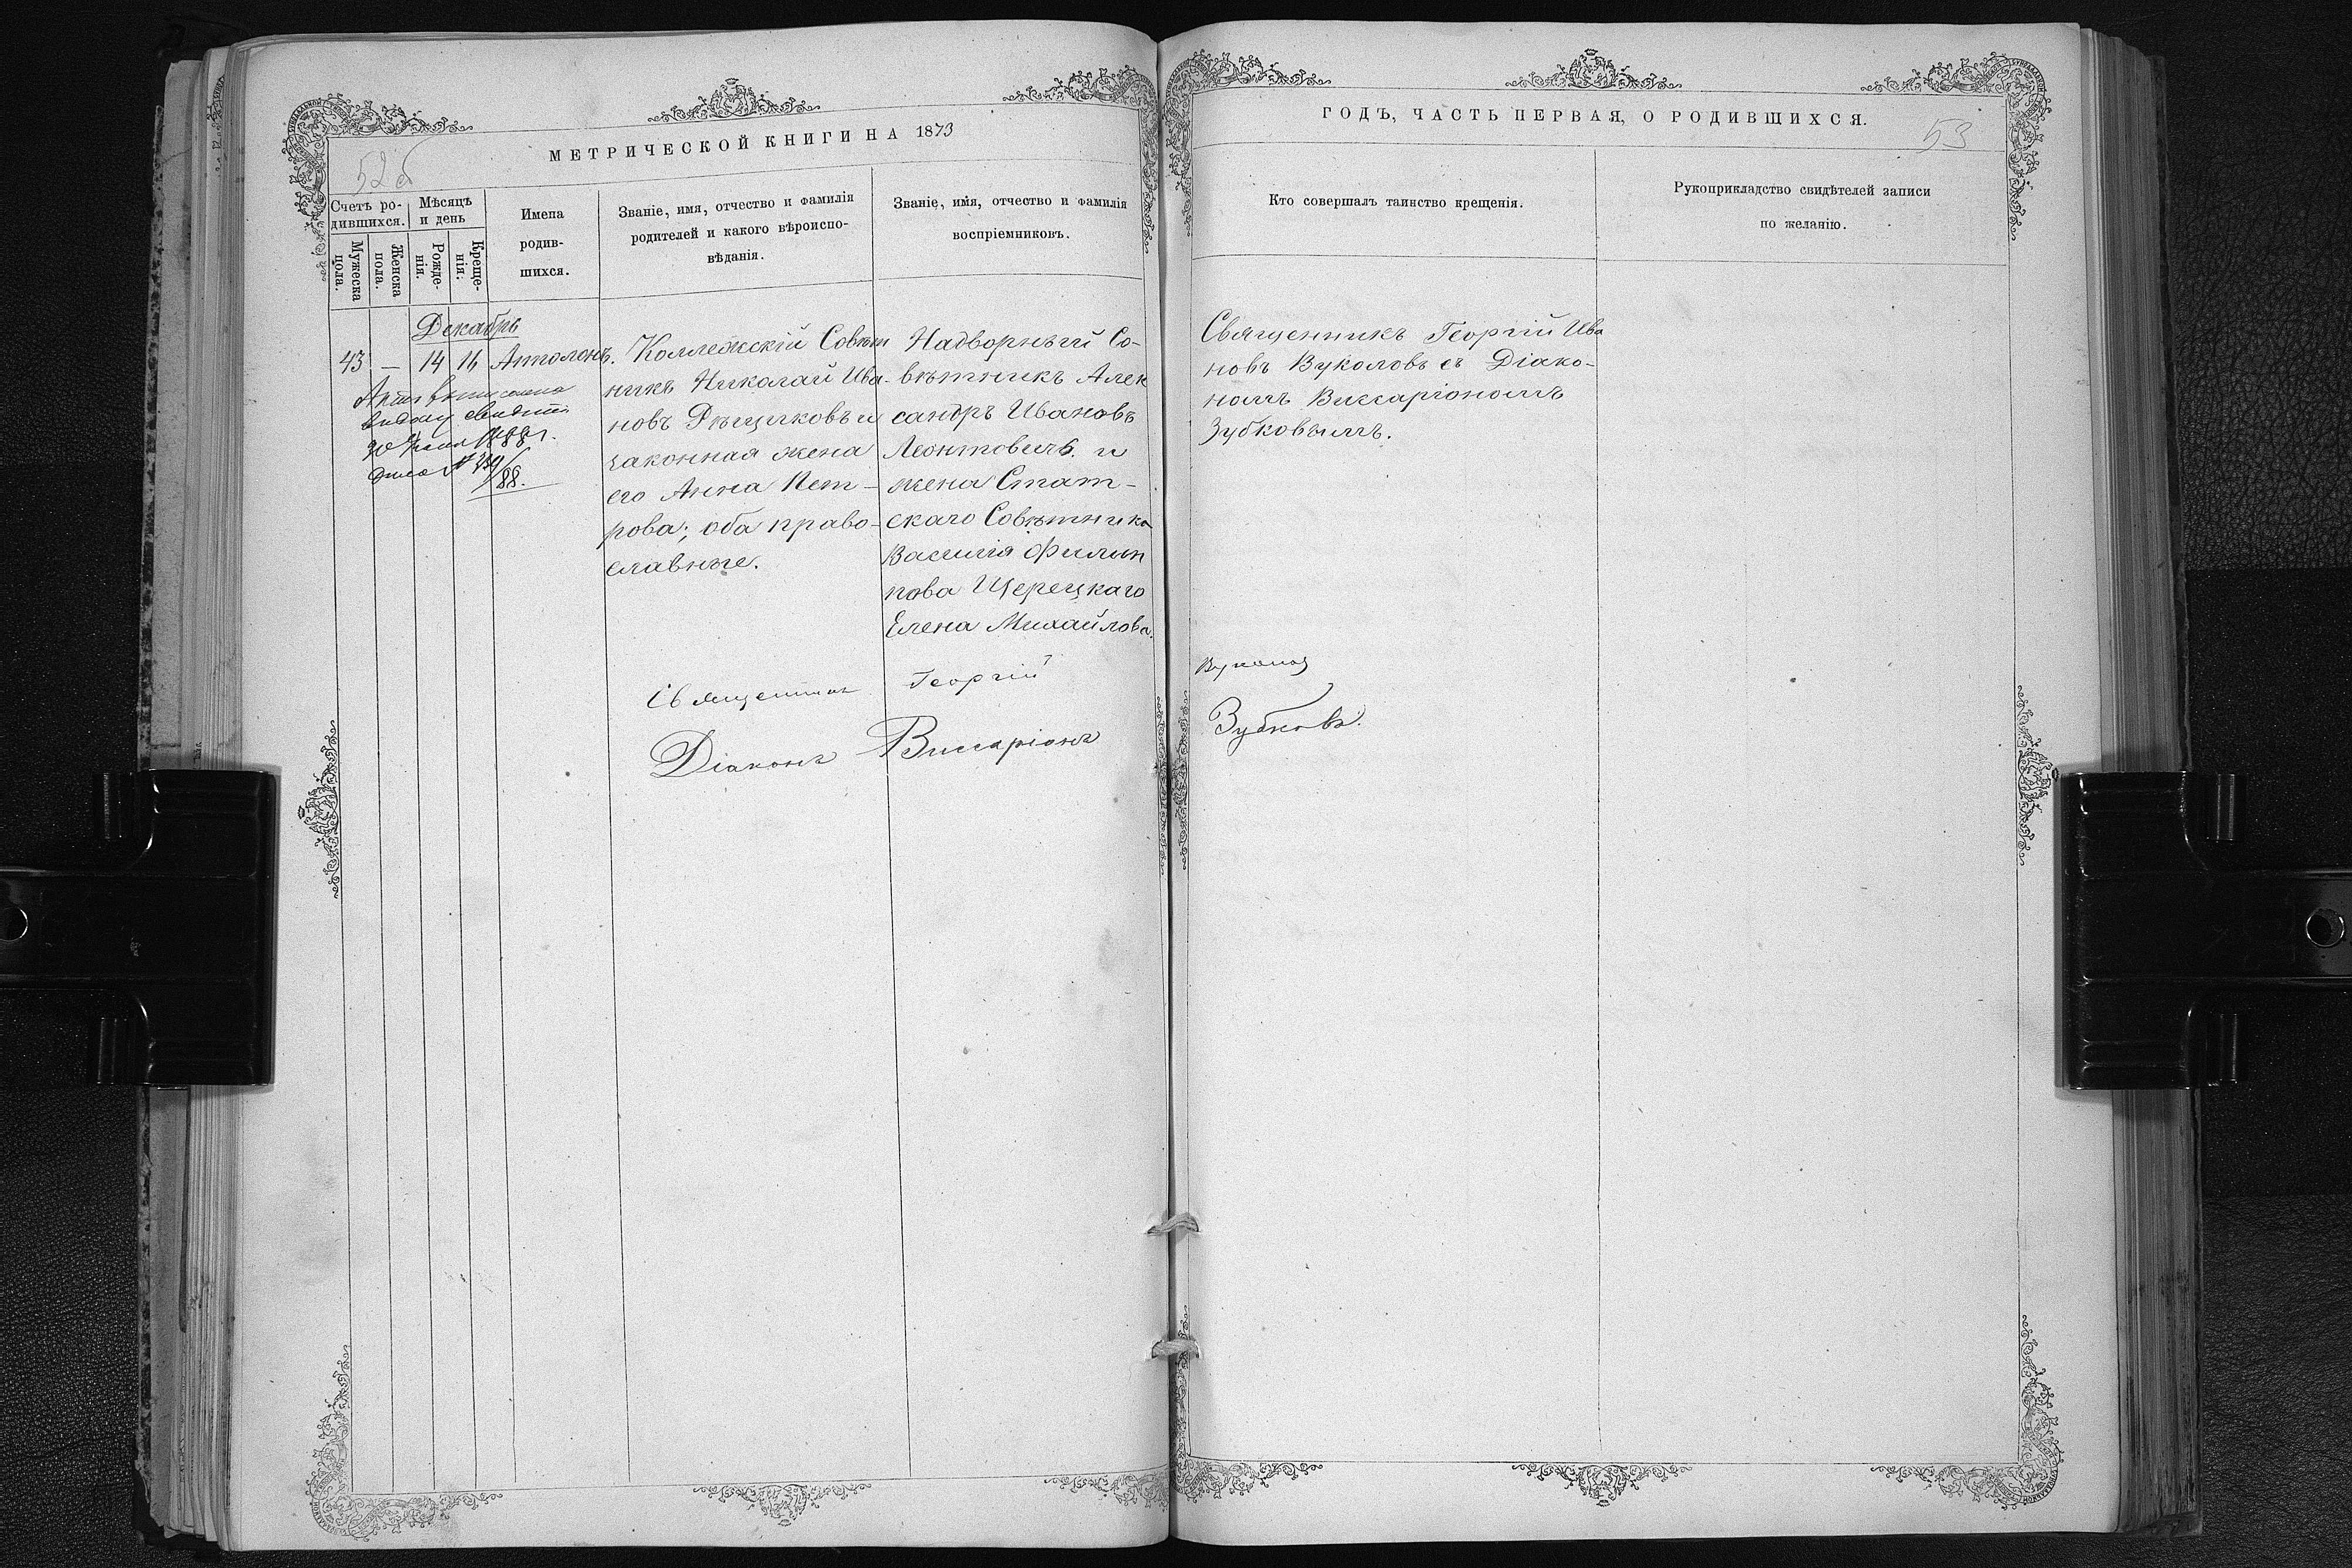 МЕТРИЧЕСКОЙ КНИГИ НА 1873
ГОДЪ, ЧАСТЬ ПЕРВАЯ, О РОДИВШИХСЯ.
52 об
53
Счетъ ро-
дившихся.
Мужеска
пола.
Женска
пола.
Мѣсяцъ
и день
Рожде-
нія.
Креще-
нія.
Имена
родив-
шихся.
Званіе, имя, отчество и фамилія
родителей и какого вѣроиспо-
вѣданія.
Званіе, имя, отчество и фамилія
воспріемниковъ.
Кто совершалъ таинство крещенія.
Рукоприкладство свидѣтелей записи
по желанію.
Декабрь
43 — 14 16 Аполонъ.
1888 г.
Коллежскій Совѣт
никъ Николай Ива-
новъ Рѣщиковъ и
законная жена
его Анна Пет-
рова; оба право-
славные.
Надворный Со-
вѣтникъ Алек
сандръ Ивановъ
Леонтовичъ и
жена Стат-
скаго Совѣтника
Василія Филип
пова Щерецкаго
Елена Михайлова.
Священникъ Георгій Ива
новъ Вуколовъ съ Діако-
номъ Виссаріономъ
Зубковымъ.
Священникъ Георгій Вуколов
Діаконъ Виссаріонъ Зубковъ.